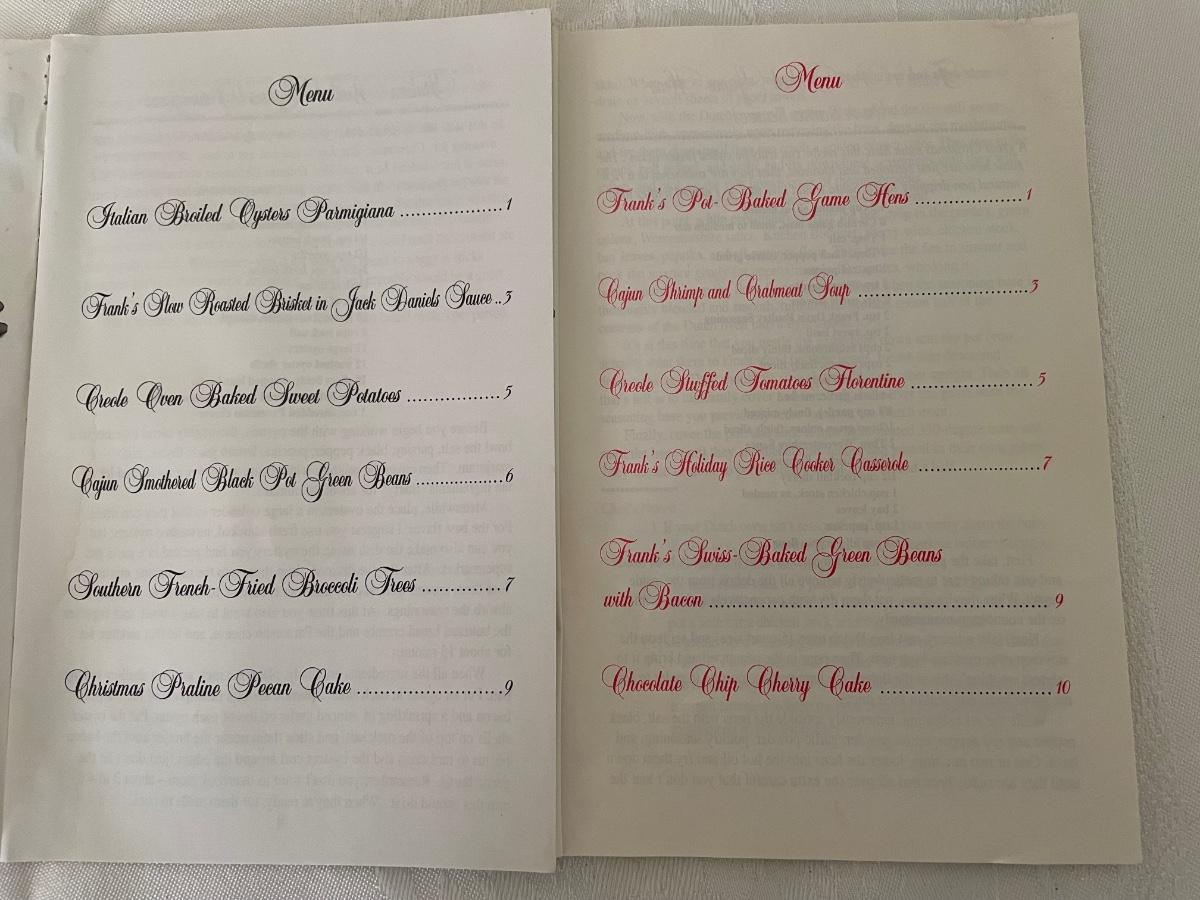 Menu
Italian Broiled Oysters Parmigiana ................... 1
Frank's Slow Roasted Brisket in Jack Daniels Sauce .. 3
Creole Oven Baked Sweet Potatoes ................. 5
Cajun Smothered Black Pot Green Beans ................ 6
Southern French-Fried Broccoli Trees ............... 7
Christmas Praline Pecan Cake ........................ 9
Menu
Frank's Pot-Baked Game Hens .................... 1
Cajun Shrimp and Crabmeat Soup ............................. 3
Creole Stuffed Tomatoes Florentine ..................... 5
Frank's Holiday Rice Cooker Casserole ..................... 7
Frank's Swiss-Baked Green Beans
with Bacon .......................................................... 9
Chocolate Chip Cherry Cake ............................. 10